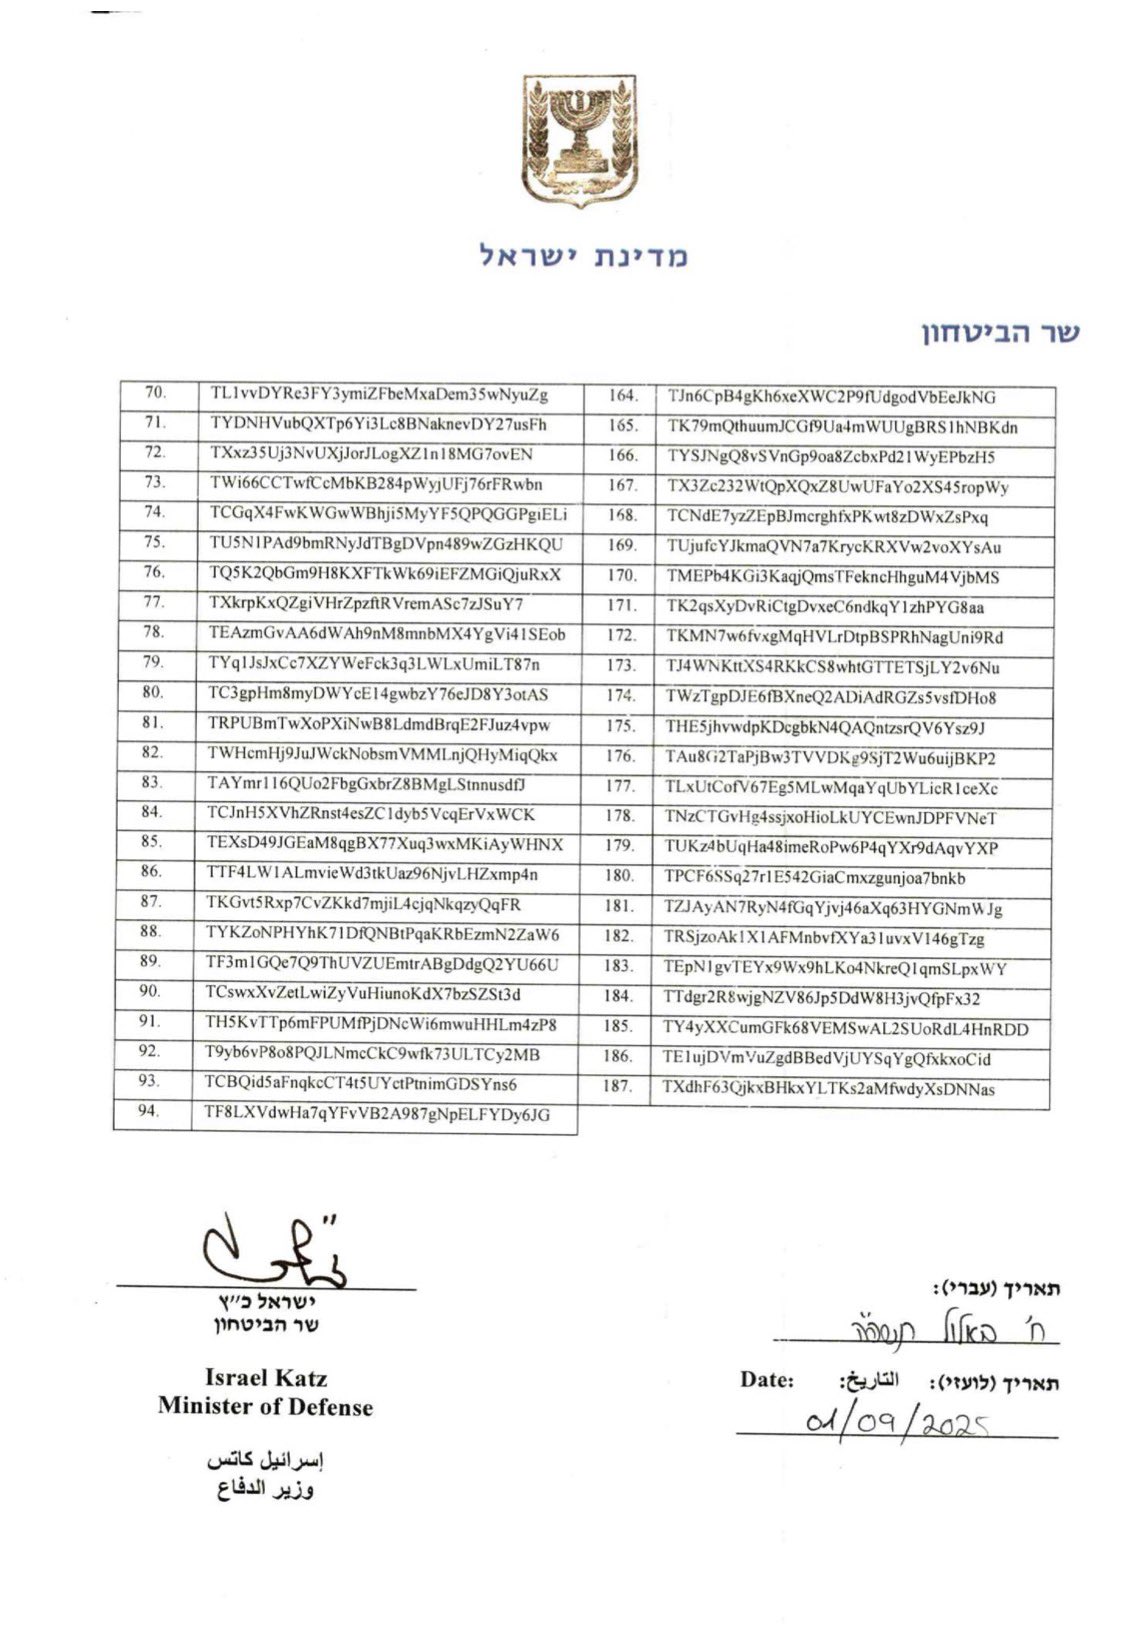 מדינת ישראל
שר הביטחון
70. TL1vvDYRe3FY3ymiZFbeMxaDem35wNyuZg 164. TJn6CpB4gKh6xeXWC2P9fUdgodVbEeJkNG
71. TYDNHVubQXTp6Yi3Lc8BNaknevDY27usFh 165. TK79mQthuumJCGf9Ua4mWUUgBRS1hNBKdn
72. TXxz35Uj3NvUXjJorJLogXZ1n18MG7ovEN 166. TYSJNgQ8vSVnGp9oa8ZcbxPd21WyEPbzH5
73. TWi66CCTwfCcMbKB284pWyjUFj76rFRwbn 167. TX3Zc232WtQpXQxZ8UwUFaYo2XS45ropWy
74. TCGqX4FwKWGwWBhji5MyYF5QPQGGPgiELi 168. TCNdE7yzZEpBJmcrghfxPKwt8zDWxZsPxq
75. TU5N1PAd9bmRNyJdTBgDVpn489wZGzHKQU 169. TUjufcYJkmaQVN7a7KrycKRXVw2voXYsAu
76. TQ5K2QbGm9H8KXFTkWk69iEFZMGiQjuRxX 170. TMEPb4KGi3KaqjQmsTFekncHhguM4VjbMS
77. TXkrpKxQZgiVHrZpzftRVremASc7zJSuY7 171. TK2qsXyDvRiCtgDvxeC6ndkqY1zhPYG8aa
78. TEAzmGvAA6dWAh9nM8mnbMX4YgVi41SEob 172. TKMN7w6fvxgMqHVLrDtpBSPRhNagUni9Rd
79. TYq1JsJxCc7XZYWeFck3q3LWLxUmiLT87n 173. TJ4WNKttXS4RKkCS8whtGTTETSjLY2v6Nu
80. TC3gpHm8myDWYcE14gwbzY76eJD8Y3otAS 174. TWzTgpDJE6fBXneQ2ADiAdRGZs5vsfDHo8
81. TRPUBmTwXoPXiNwB8LdmdBrqE2FJuz4vpw 175. THE5jhvwdpKDcgbkN4QAQntzsrQV6Ysz9J
82. TWHcmHj9JuJWckNobsmVMMLnjQHyMiqQkx 176. TAu8G2TaPjBw3TVVDKg9SjT2Wu6uijBKP2
83. TAYmr116QUo2FbgGxbrZ8BMgLStnnusdfJ 177. TLxUtCofV67Eg5MLwMqaYqUbYLicR1ceXc
84. TCJnH5XVhZRnst4esZC1dyb5VcqErVxWCK 178. TNzCTGvHg4ssjxoHioLkUYCEwnJDPFVNeT
85. TEXsD49JGEaM8qgBX77Xuq3wxMKiAyWHNX 179. TUKz4bUqHa48imeRoPw6P4qYXr9dAqvYXP
86. TTF4LW1ALmvieWd3tkUaz96NjvLHZxmp4n 180. TPCF6SSq27r1E542GiaCmxzgunjoa7bnkb
87. TKGvt5Rxp7CvZKkd7mjiL4cjqNkqzyQqFR 181. TZJAyAN7RyN4fGqYjvj46aXq63HYGNmWJg
88. TYKZoNPHYhK71DfQNBtPqaKRbEzmN2ZaW6 182. TRSjzoAk1X1AFMnbvfXYa31uvxV146gTzg
89. TF3m1GQe7Q9ThUVZUEmtrABgDdgQ2YU66U 183. TEpN1gvTEYx9Wx9hLKo4NkreQ1qmSLpxWY
90. TCswxXvZetLwiZyVuHiunoKdX7bzSZSt3d 184. TTdgr2R8wjgNZV86Jp5DdW8H3jvQfpFx32
91. TH5KvTTp6mFPUMfPjDNcWi6mwuHHLm4zP8 185. TY4yXXCumGFk68VEMSwAL2SUoRdL4HnRDD
92. T9yb6vP8o8PQJLNmcCkC9wfk73ULTCy2MB 186. TE1ujDVmVuZgdBBedVjUYSqYgQfxkxoCid
93. TCBQid5aFnqkcCT4t5UYctPtnimGDSYns6 187. TXdhF63QjkxBHkxYLTKs2aMfwdyXsDNNas
94. TF8LXVdwHa7qYFvVB2A987gNpELFYDy6JG
ישראל כ״ץ
שר הביטחון
Israel Katz
Minister of Defense
إسرائيل كاتس
وزير الدفاع
תאריך (עברי):
ח' באלול תשפ״ה
תאריך (לועזי): التاريخ: Date:
01/09/2025